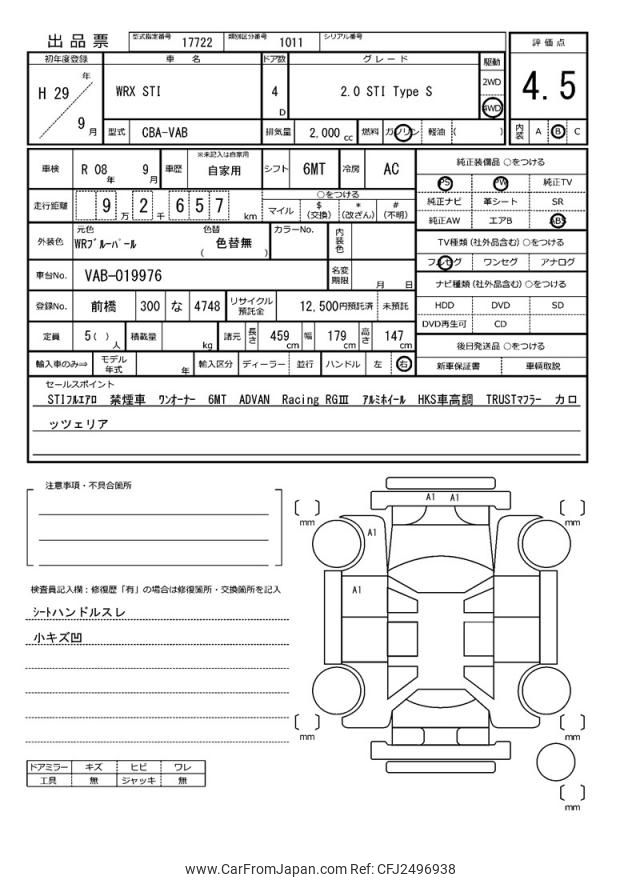 出品票 型式指定番号 17722 類別区分番号 1011 シリアル番号
初年度登録 車名 ドア数 グレード 駆動 評価点
H 29 年 9 月 WRX STI 4 D 2.0 STI Type S 2WD 4WD 4.5
型式 CBA-VAB 排気量 2,000 cc 燃料 ガソリン 軽油 ( ) 内装 A B C
車検 R 08 年 9 月 車歴 ※未記入は自家用 自家用 シフト 6MT 冷房 AC 純正装備品 ○をつける
PS PW 純正TV
走行距離 9 万 2 千 6 5 7 km ○をつける
マイル $ (交換) * (改ざん) # (不明) 純正ナビ 革シート SR
純正AW エアB ABS
外装色 元色 WRブルーパール 色替 ( 色替無 ) カラーNo. 内装色 TV種類 (社外品含む) ○をつける
フルセグ ワンセグ アナログ
車台No. VAB-019976 名変期限 月 日 ナビ種類 (社外品含む) ○をつける
登録No. 前橋 300 な 4748 リサイクル預託金 12,500円預託済 未預託 HDD DVD SD
DVD再生可 CD
定員 5( ) 人 積載量 kg 諸元 長さ 459 cm 幅 179 cm 高さ 147 cm 後日発送品 ○をつける
輸入車のみ⇒ モデル年式 年 輸入区分 ディーラー 並行 ハンドル 左 右 新車保証書 車輌取説
セールスポイント
STIフルエアロ 禁煙車 ワンオーナー 6MT ADVAN Racing RGⅢ アルミホイール HKS車高調 TRUSTマフラー カロ
ッツェリア
注意事項・不具合箇所
A1 A1
mm mm
A1
検査員記入欄：修復歴「有」の場合は修復箇所・交換箇所を記入
A1
シートハンドルスレ
小キズ凹
mm mm
ドアミラー キズ ヒビ ワレ
工具 無 ジャッキ 無
mm
www.CarFromJapan.com Ref: CFJ2496938